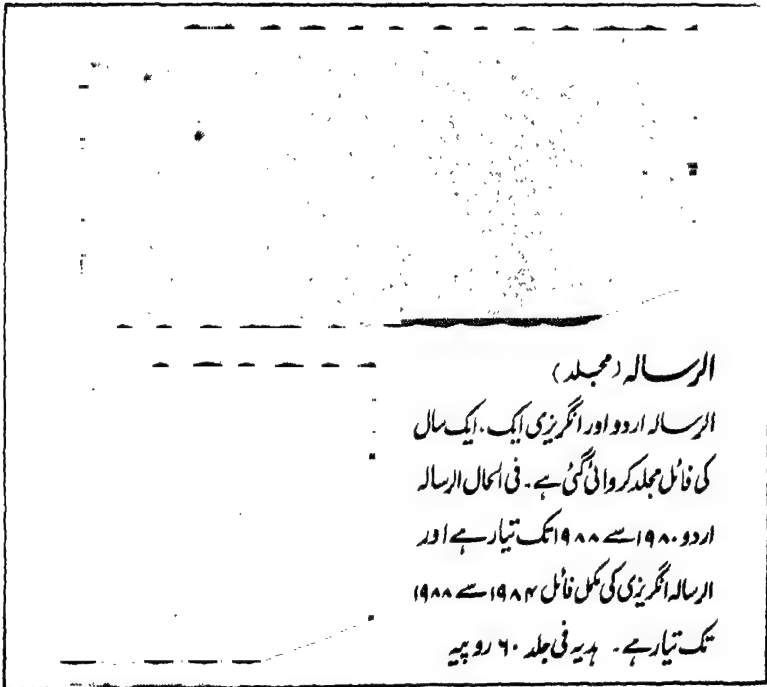 الرسالہ (مجلد)
الرسالہ اردو اور انگریزی ایک، ایک سال
کی فائل مجلد کروائی گئی ہے۔ فی الحال الرسالہ
اردو ۱۹۸۰ سے ۱۹۸۸ تک تیار ہے اور
الرسالہ انگریزی کی مکمل فائل ۱۹۸۴ سے ۱۹۸۸
تک تیار ہے۔ ہدیہ فی جلد ۶۰ روپیہ